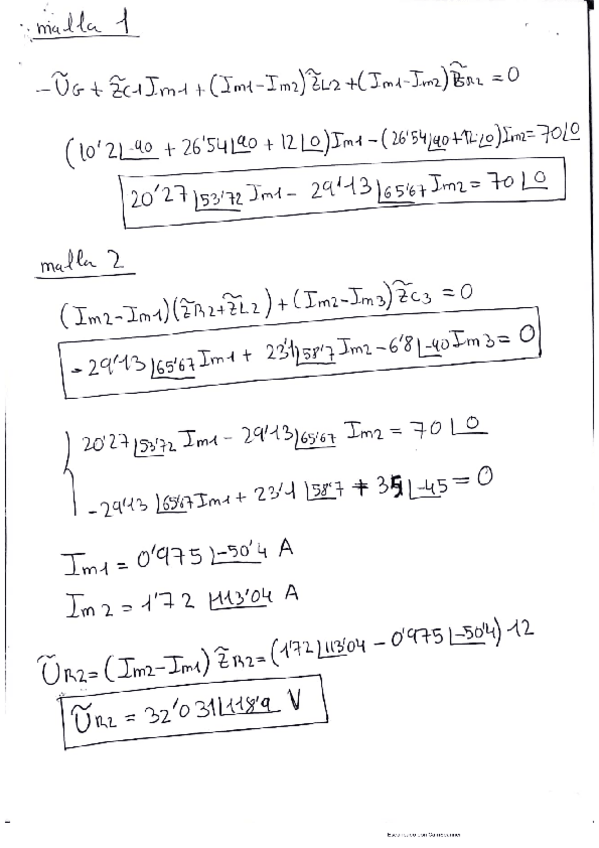 malla 1
-ŨG + Z̃C1 Im1 + (Im1-Im2) Z̃L2 + (Im1-Im2) Z̃R2 = 0
(10'2∠-90 + 26'54∠90 + 12∠0) Im1 - (26'54∠90 + 12∠0) Im2 = 70∠0
20'27∠53'72 Im1 - 29'13∠65'67 Im2 = 70∠0
malla 2
(Im2-Im1)(Z̃R2+Z̃L2) + (Im2-Im3) Z̃C3 = 0
-29'13∠65'67 Im1 + 23'1∠58'7 Im2 - 6'8∠-90 Im3 = 0
20'27∠53'72 Im1 - 29'13∠65'67 Im2 = 70∠0
-29'13∠65'67 Im1 + 23'1∠58'7 + 35∠-45 = 0
Im1 = 0'975∠-50'4 A
Im2 = 1'72∠113'04 A
ŨR2 = (Im2-Im1) Z̃R2 = (1'72∠113'04 - 0'975∠-50'4) 12
ŨR2 = 32'031∠118'9 V
Escaneado con CamScanner